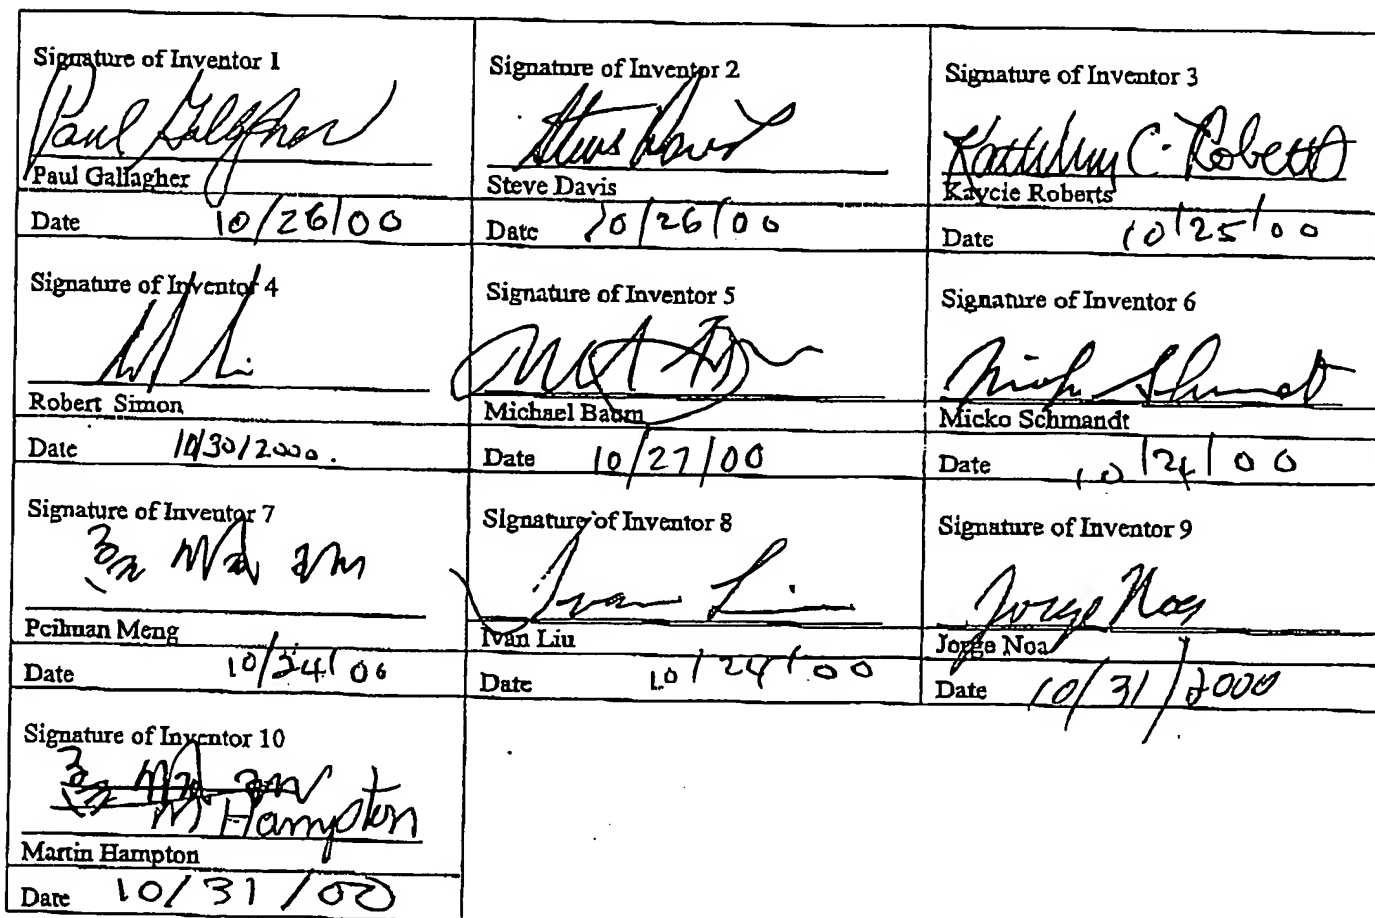 Signature of Inventor 1
Paul Gallagher
Paul Gallagher
Date 10/26/00
Signature of Inventor 2
Steve Davis
Steve Davis
Date 10/26/00
Signature of Inventor 3
C. Roberts
Kaycie Roberts
Date 10/25/00
Signature of Inventor 4
Robert Simon
Date 10/30/2000.
Signature of Inventor 5
Michael Baum
Date 10/27/00
Signature of Inventor 6
Micko Schmandt
Micko Schmandt
Date 10/24/00
Signature of Inventor 7
Peihuan Meng
Date 10/24/00
Signature of Inventor 8
Ivan Liu
Ivan Liu
Date 10/24/00
Signature of Inventor 9
Jorge Noa
Jorge Noa
Date 10/31/2000
Signature of Inventor 10
M Hampton
Martin Hampton
Date 10/31/00